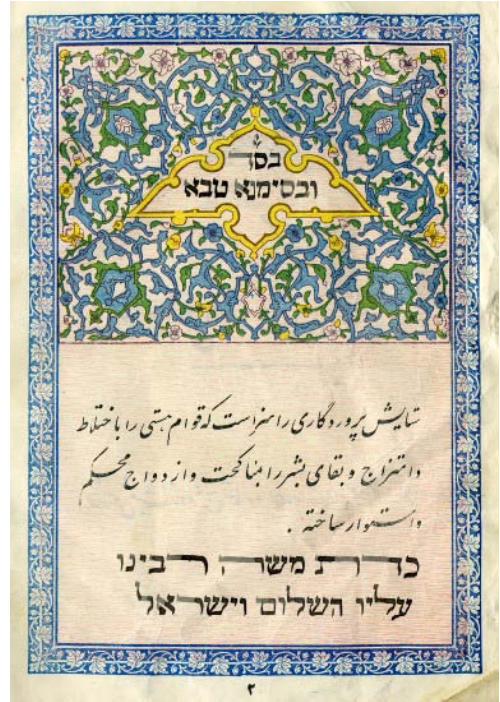 בסד
ובסימנא טבא
ستایش پروردگاری را سزاست که قوام هستی را باختلاط
و امتزاج و بقای بشر را بمناکحت و ازدواج محکم
و استوار ساخته .
כדרת משה רבינו
עליו השלום וישראל
۲